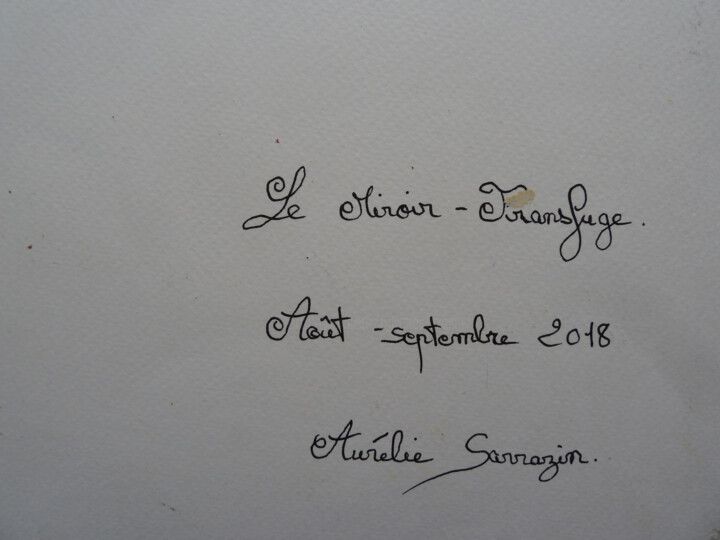 Le Miroir - Transfuge.
Août - septembre 2018
Aurélie Sarrazin.